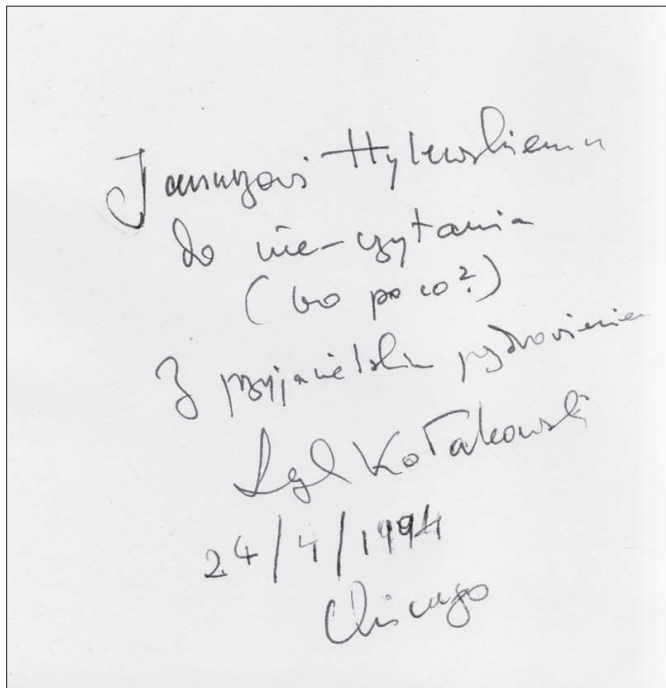 Januszowi Hylewskiemu
do nie-czytania
(bo po co?)
Z przyjacielskim pozdrowieniem
Leszek Kołakowski
24/4/1994
Chicago